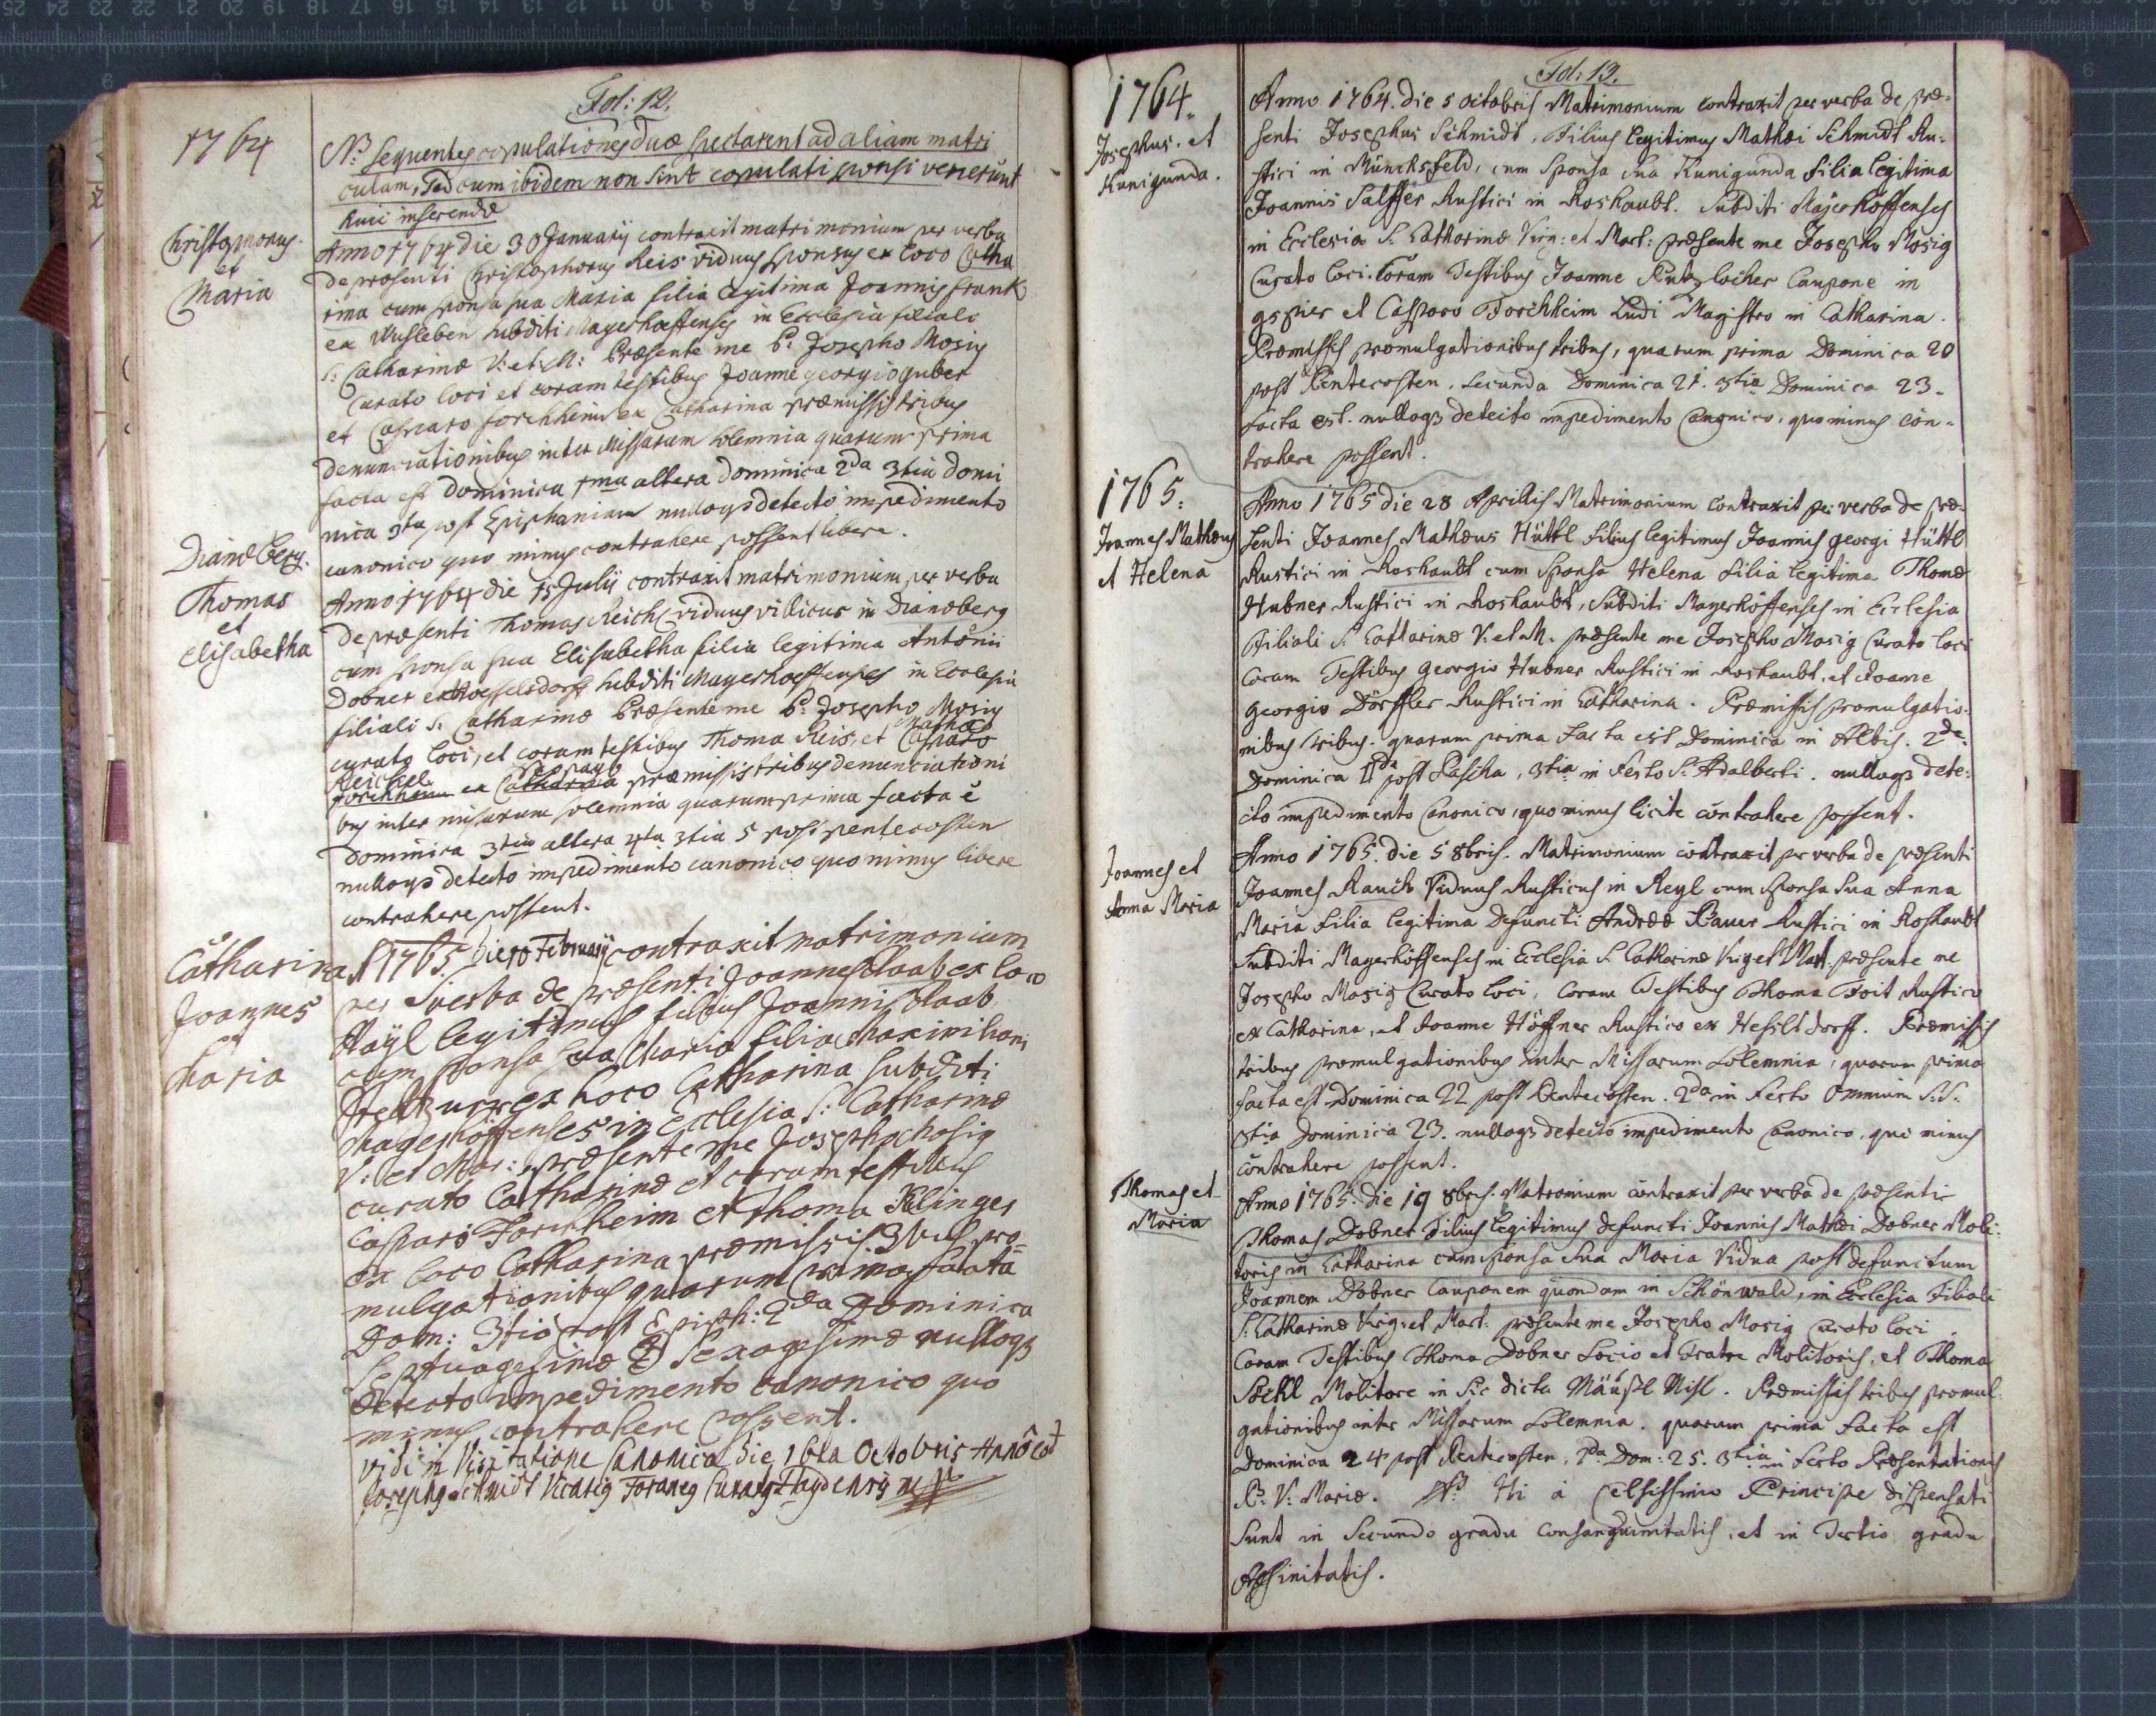 Fol: 12.
1764
NB. sequentes copulationes duæ spectarent ad aliam matri
culam, sed cum ibidem non sint copulati sponsi venerunt
huic inserendæ
Christophorus
et
Maria
Anno 1764 die 30 January contraxit matrimonium per verba
de præsenti Christophorus Reis viduus sponsus ex loco Catha
rina cum sponsa sua Maria filia legitima Joannis Frank
ex Wusleben subditi Mayerhoeffenses in Ecclesia filiali
S: Catharinæ V: et M: Præsente me P: Josepho Mosig
Curato loci et coram testibus Joanne georgio guber
et Casparo forchheim ex Catharina præmissis tribus
denunciationibus inter Missarum solemnia quarum prima
facta est Dominica 1ma altera dominica 2da 3tia domi
nica 3tia post Epiphaniam nulloqz detecto impedimento
canonico quo minus contrahere possent libere.
Dianæberg.
Thomas
et
Elisabetha
Anno 1764 die 15 Julij contraxit matrimonium per verba
de præsenti Thomas Reich viduus villicus in Dianæberg
cum sponsa sua Elisabetha filia legitima Antonii
Dobner ex Hoesselsdorff subditi Mayerhoeffenses in Ecclesia
filiali S. Catharinæ Præsente me P: Josepho Mosig
curato loci, et coram testibus Thoma Reis, et Casparo
Mathæo
Reichel
forchheim ex Catharina præmissis tribus denunciationi
bus inter missarum solemnia quarum prima facta ē
Dominica 3tia altera 4ta 3tia 5 post pentecosten
nulloqz detecto impedimento canonico quo minus libere
contrahere possent.
Catharina
Joannes
et
Maria
A 1765. Die 10 February contraxit matrimonium
per Verba de præsenti Joannes Slaab ex loco
Hayl legitimus filius Joannis Slaab
cum sponsa sua Maria filia Maximiliani
ex Loco Catharina subditi
Mageshöffenses in Ecclesia S: Catharinæ
V: et Mar: præsente me Josepho Mosig
curato Catharinæ et coram testibus
Casparo Forchheim et Thoma Klinger
ex loco Catharina præmissis 3bus pro=
mulgationibus quarum prima facta
Dom: 3tio post Epiph: 2da Dominica
Septuagesimæ 3 Sexagesimæ nulloqz
detecto impedimento canonico quo
minus contrahere possent.
Vidi in Visitatione Canonica die 16ta Octobris Anno eod
Josephus Schmidt Vicarius Foraneus Curatus Haydensis mp
Fol: 13.
1764.
Josephus. et
Kunigunda.
Anno 1764. die 5 octobris Matrimonium contraxit per verba de præ=
senti Josephus Schmidt, Filius legitimus Mathæi Schmidt Ru=
stici in Müncksfeld, cum Sponsa sua Kunigunda Filia legitima
Joannis Salffer Rustici in Roshaubt. Subditi Majerhöffenses
in Ecclesia S. Catharinæ Virg: et Mart: præsente me Josepho Mosig
Curato loci. Coram Testibus Joanne Putzlocher Caupone in
gspier et Casparo Forchheim Ludi Magistro in Catharina.
Præmissis promulgationibus tribus, quarum prima Dominica 20
post Pentecosten. Secunda Dominica 21. 3tia Dominica 23.
facta est. nulloqz detecto impedimento Canonico, quo minus con=
trahere possent.
1765.
Joannes Mathæus
et Helena
Anno 1765 die 28 Aprilis Matrimonium contraxit per verba de præ=
senti Joannes Mathæus Hüttl Filius legitimus Joannis georgi Hüttl
Rustici in Roshaubt cum Sponsa Helena Filia legitima Thomæ
Hubner Rustici in Roshaubt, Subditi Mayerhöffenses in Ecclesia
Filiali S. Catharinæ V. et M. præsente me Josepho Mosig Curato loci
Coram Testibus georgio Hubner Rustici in Roshaubt, et Joanne
georgio Dörffler Rustici in Catharina. Præmissis promulgatio=
nibus tribus. quarum prima facta est Dominica in Albis. 2da
Dominica IIda post Pascha, 3tia in Festo S. Adalberti. nulloqz dete=
cto impedimento Canonico, quo minus licite contrahere possent.
Joannes et
Anna Maria
Anno 1765. die 5 8bris. Matrimonium contraxit per verba de præsenti
Joannes Rauch Viduus Rusticus in Reyl cum sponsa sua Anna
Maria filia legitima Defuncti Andreæ Bauer Rustici in Roshaubt
Subditi Mayerhöffenses in Ecclesia S. Catharinæ Virg et Mart: præsente me
Josepho Mosig Curato loci, Coram Testibus Thoma Foit Rustico
ex Catharina, et Joanne Höffner Rustico ex Heslsdorff. Præmissis
tribus promulgationibus inter Missarum Solemnia, quarum prima
facta est Dominica 22 post Pentecosten. 2da in Festo Omnium S.S.
3tia Dominica 23. nulloqz detecto impedimento Canonico, quo minus
contrahere possent.
Thomas et
Maria
Anno 1765. die 19 8bris. Matromium contraxit per verba de præsenti
Thomas Dobner Filius legitimus defuncti Joannis Mathæi Dobner Moli=
toris in Catharina cum sponsa sua Maria Vidua post defunctum
Joannem Dobner Cauponem quondam in Schönwald, in Ecclesia Filiali
S. Catharinæ Virg: et Mart: præsente me Josepho Mosig Curato loci
Coram Testibus Thoma Dobner Socio et Fratre Molitoris, et Thoma
Söckl Molitore in sic dicta Mäüsl Mihl. Præmissis tribus promul=
gationibus inter Missarum Solemnia. quarum prima facta est
Dominica 24 post Pentecosten, 2da Dom: 25. 3tia in Festo Præsentationis
B. V. Mariæ. NB Hi à Celsissimo Principe dispensati
Sunt in Secundo gradu Consanguinitatis, et in Tertio gradu
Affinitatis.